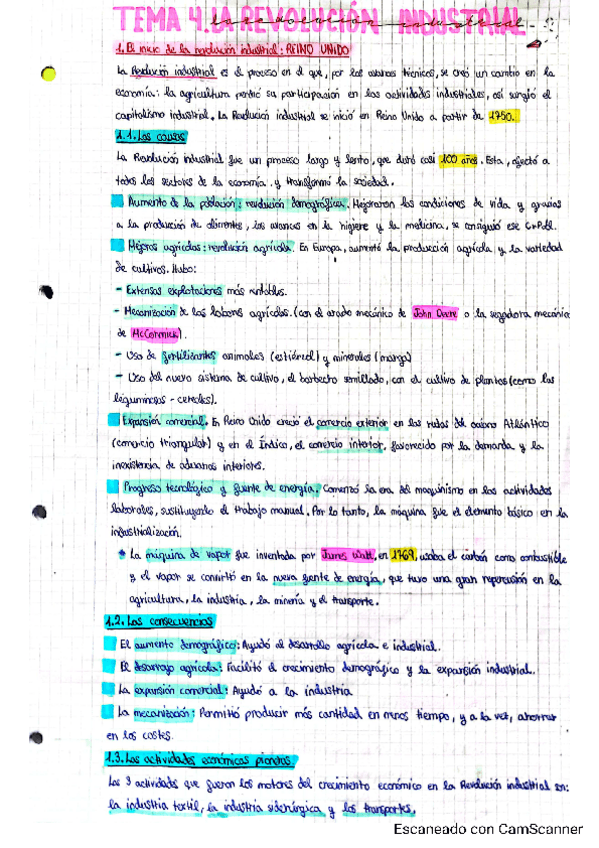 TEMA 4. LA REVOLUCIÓN INDUSTRIAL
1. El inicio de la revolución industrial: REINO UNIDO
La Revolución industrial es el proceso en el que, por los avances técnicos, se creó un cambio en la
economía: la agricultura perdió su participación en las actividades industriales, así surgió el
capitalismo industrial. La Revolución industrial se inició en Reino Unido a partir de 1750.
1.1. Las causas
La Revolución industrial fue un proceso largo y lento, que duró casi 100 años. Esta, afectó a
todos los sectores de la economía y transformó la sociedad.
Aumento de la población: revolución demográfica. Mejoraron las condiciones de vida y gracias
a la producción de alimentes, los avances en la higiene y la medicina, se consiguió ese
Mejoras agrícolas: revolución agrícola. En Europa, aumentó la producción agrícola y la variedad
de cultivos. Hubo:
- Extensas explotaciones más rentables.
- Mecanización de las labores agrícolas. (con el arado mecánico de John Deere o la segadora mecánica
de McCormick).
- Uso de fertilizantes animales (estiércol) y minerales (marga)
- Uso del nuevo sistema de cultivo, el barbecho semillado, con el cultivo de plantas (como las
leguminosas - cereales).
Expansión comercial. En Reino Unido creció el comercio exterior en las rutas del océano Atlántico
(comercio triangular) y en el Índico, el comercio interior, favorecido por la demanda y la
inexistencia de aduanas interiores.
Progreso tecnológico y fuente de energía. Comenzó la era del maquinismo en las actividades
laborales, sustituyendo el trabajo manual. Por lo tanto, la máquina fue el elemento básico en la
industrialización.
* La máquina de vapor fue inventada por James Watt, en 1769, usaba el carbón como combustible
y el vapor se convirtió en la nueva fuente de energía, que tuvo una gran repercusión en la
agricultura, la industria, la minería y el transporte.
1.2. Las consecuencias
El aumento demográfico: Ayudó al desarrollo agrícola e industrial.
El desarroyo agrícola: Facilitó el crecimiento demográfico y la expansión industrial.
La expansión comercial: Ayudó a la industria
La mecanización: Permitió producir más cantidad en menos tiempo, y a la vez, ahorrar
en los costes.
1.3. Las actividades económicas pioneras.
Las 3 actividades que fueron los motores del crecimiento económico en la Revolución industrial son:
la industria textil, la industria siderúrgica y los transportes.
Escaneado con CamScanner